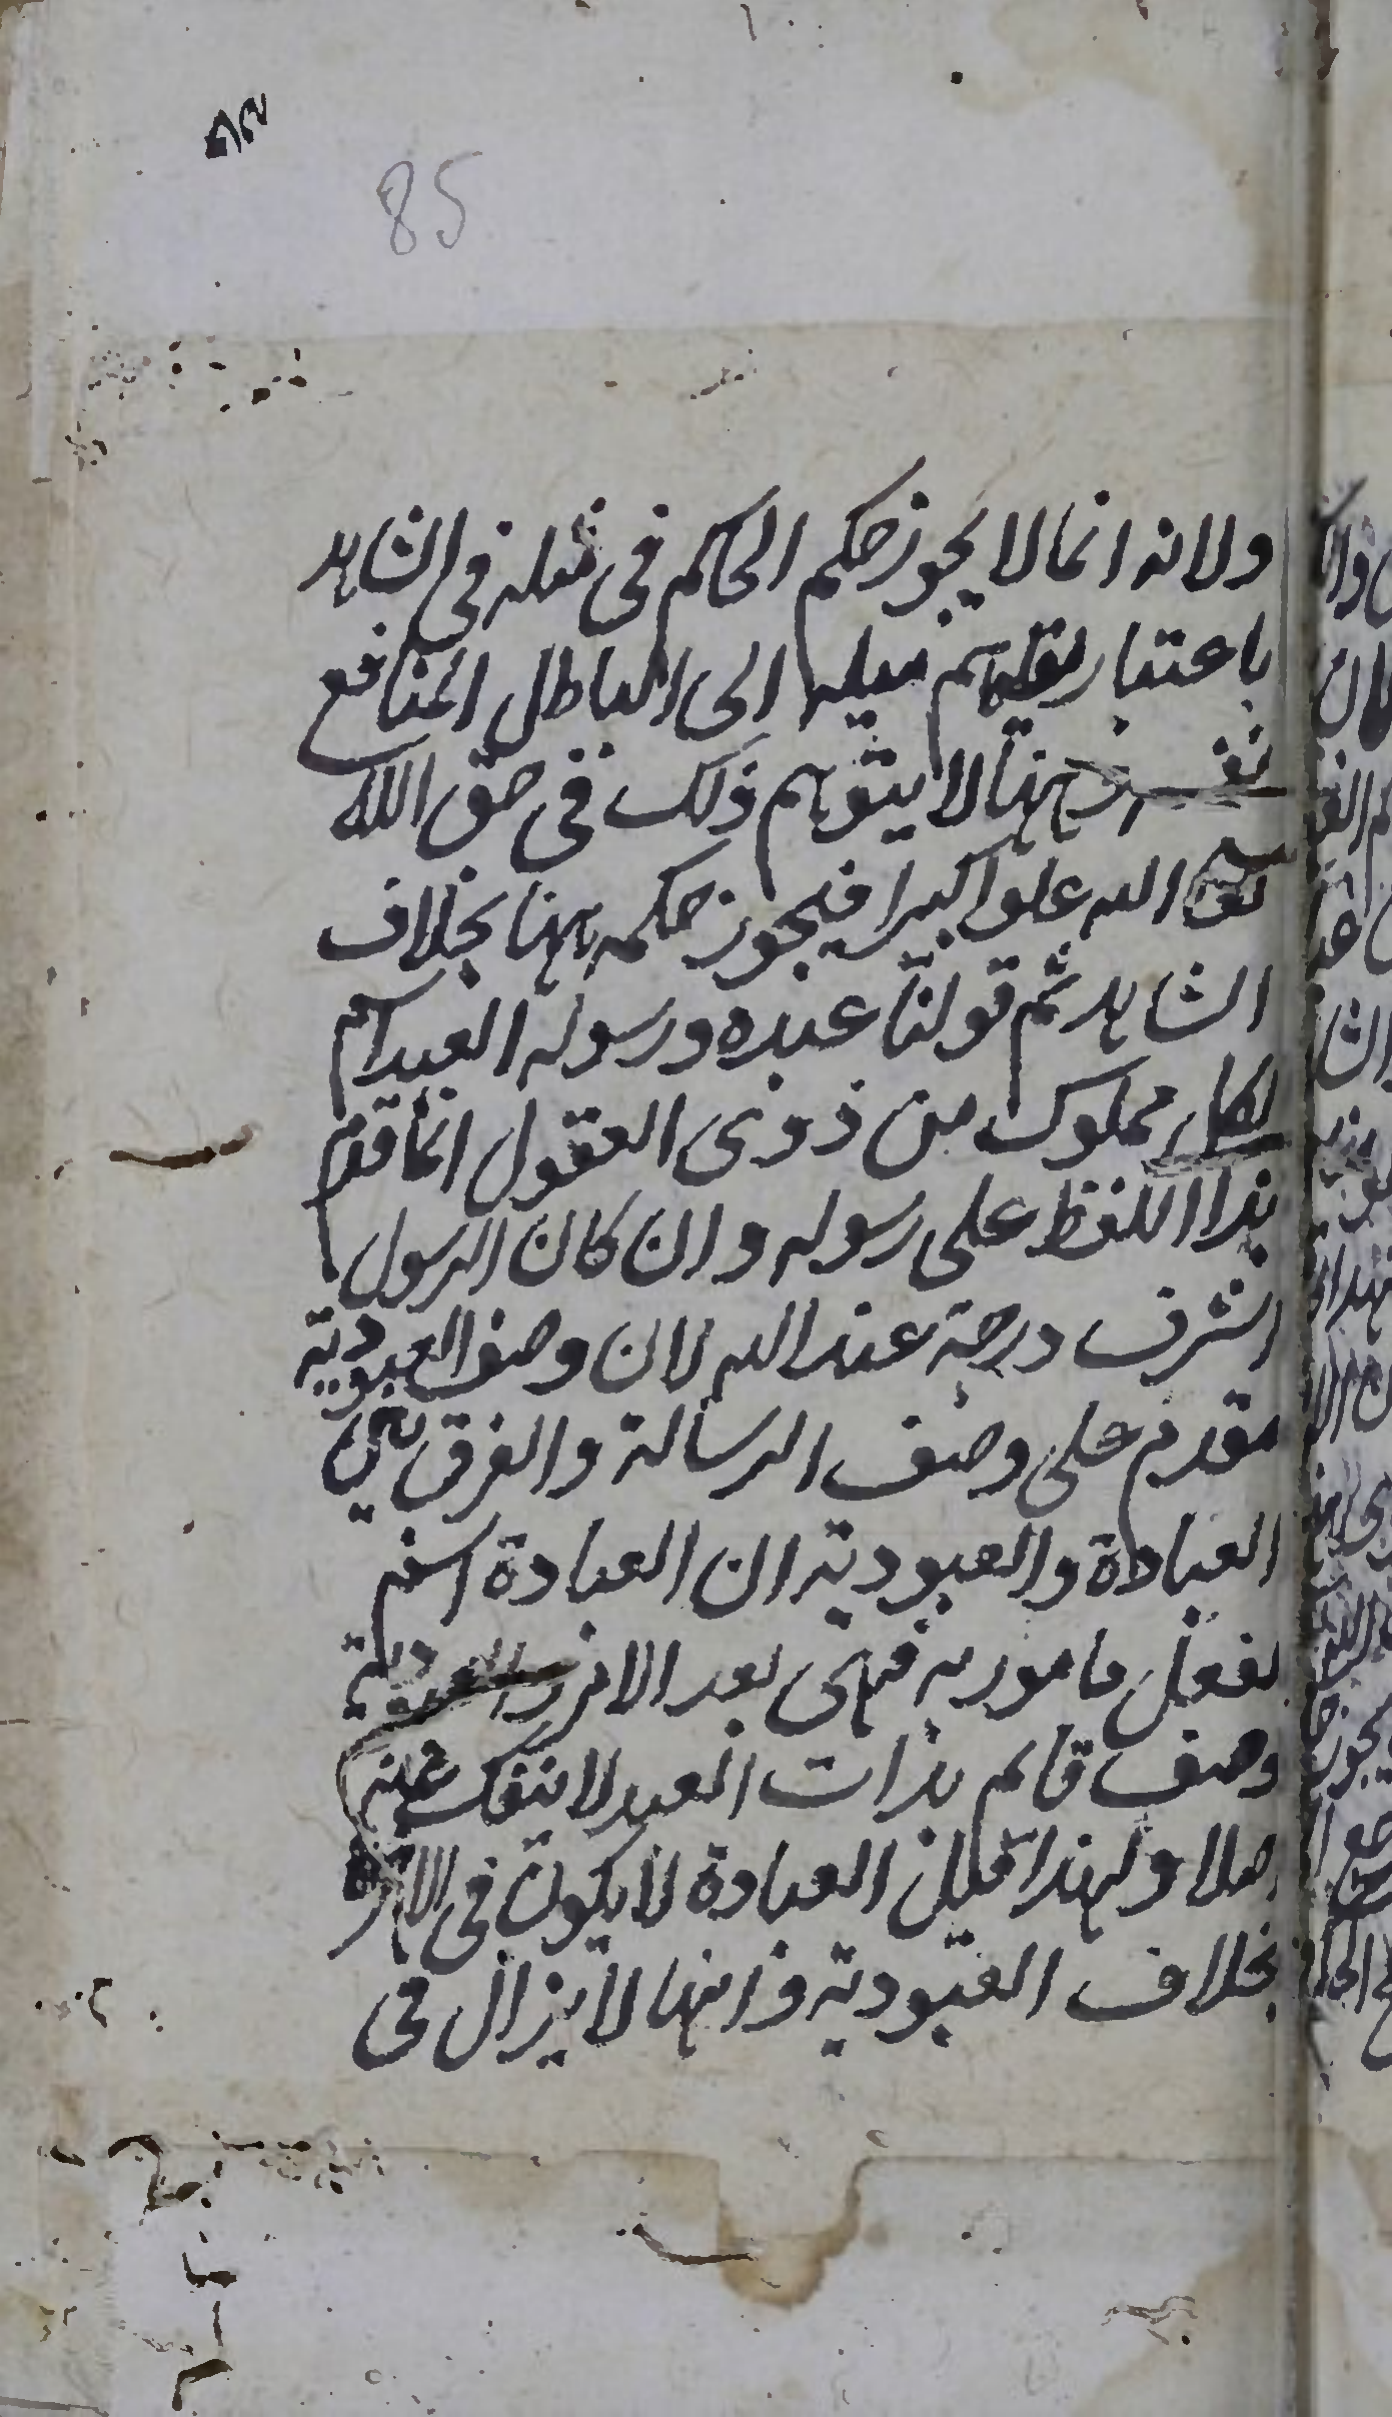 85
ولانه انما لا يجوز حكم الحاكم فى مثله فى الشاهد
باعتبار توهم ميله الى الباطل المنافع
نفسه وههنا لا يتوهم ذلك فى حق الله
تعالى الله علوا كبيرا فيجوز حكمه ههنا بخلاف
الشاهد ثم قولنا عبده ورسوله العبد اسم
لكل مملوك من ذوى العقول انما قدم
هذا اللفظ على رسوله وان كان الرسول
اشرف درجة عند الله لان وصف العبودية
مقدم على وصف الرسالة والفرق بين
العبادة والعبودية ان العبادة اسم
لفعل مامور به فهى بعد الامر والعبودية
وصف قائم بذات العبد لا ينفك عنه
اصلا ولهذا قيل العبادة لا يكون فى الاخرة
بخلاف العبودية فانها لا يزال فى